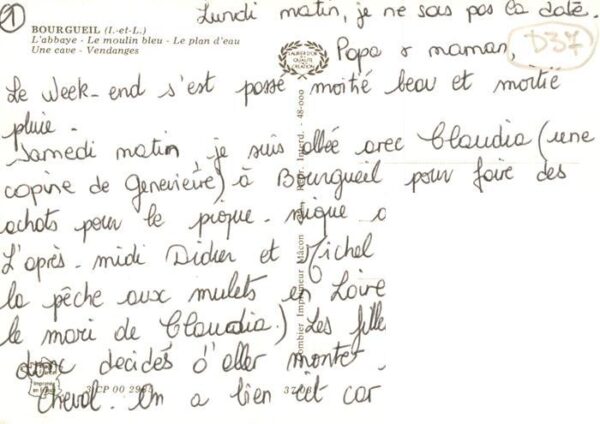 ①
Lundi matin, je ne sais pas la date.
D37
BOURGUEIL (I.-et-L.)
L'abbaye - Le moulin bleu - Le plan d'eau
Une cave - Vendanges
Papa & maman,
Le week-end s'est passé moitié beau et moitié
pluie.
Samedi matin, je suis allée avec Claudia (une
copine de Geneviève) à Bourgueil pour faire des
achats pour le pique-nique
L'après-midi Didier et Michel
la pêche aux mulets en Loire
le mari de Claudia) Les fille
donc décidés d'aller monter
cheval. On a bien car
3 CP 00
Combier Imprimeur Mâcon
Interd. - 48-000